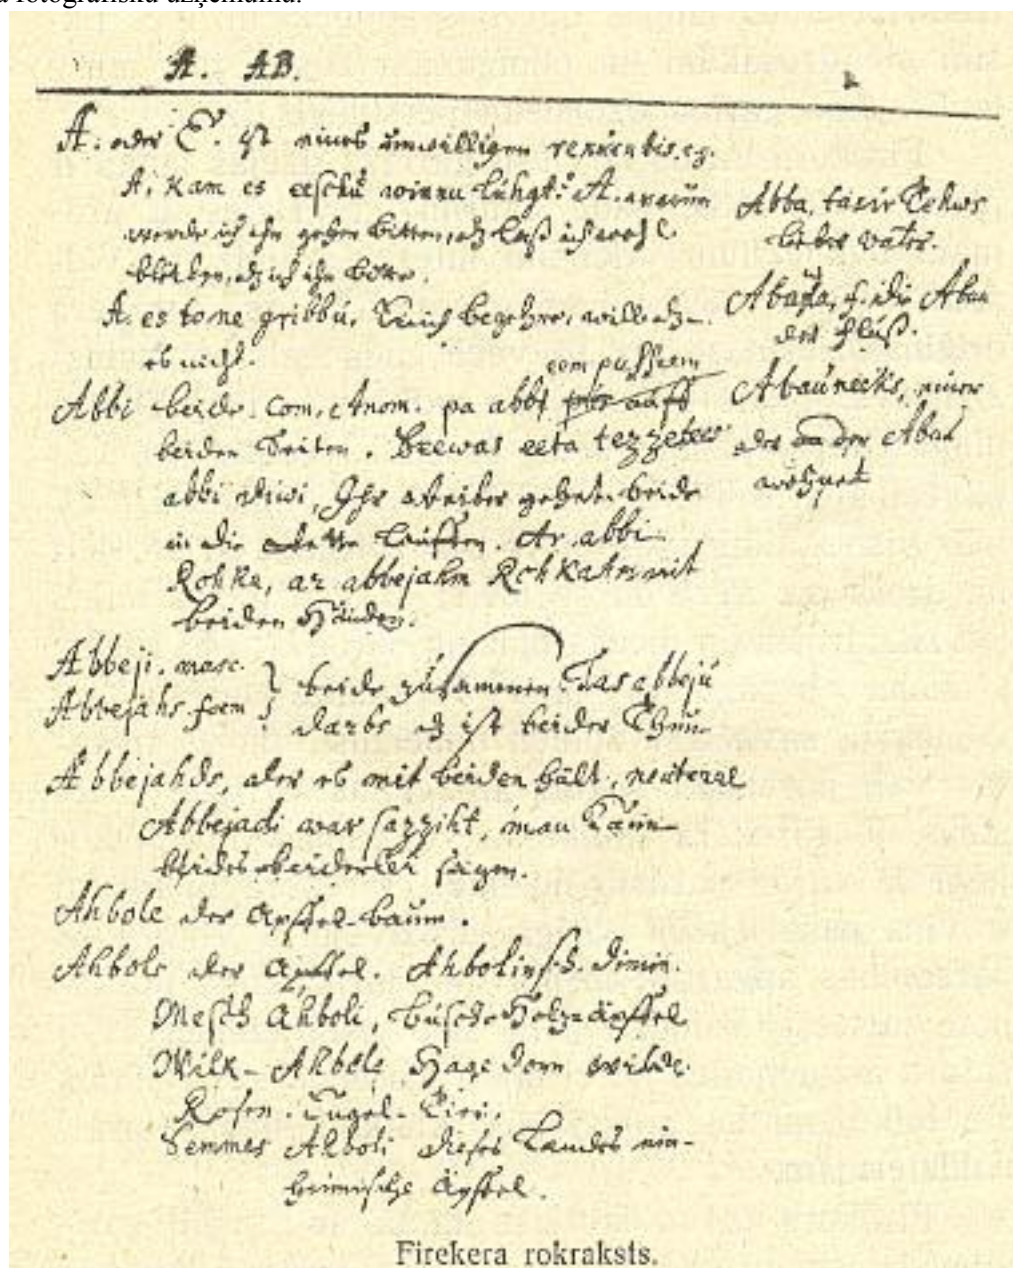 a fotogrāfisku uzņēmumu.
A. AB.
A. oder E. ist eines unwilligen renuentis. eg.
A. Kam es eeschu winnu luhgt? A. warum
werde ich ihn gehen bitten, daß ich wohl
bleiben, daß ich ihn bitte.
A. es to ne gribbu. ich begehre, will daß
es nicht.
eem pusseem
Abbi beide. Com. Anom. pa abbi
beiden Seiten. Seewas eeta tezzetees
abbi diwi, Ihr Weiber gehet beide
in die Wette lauffen. Ar abbi
Rohka, ar abbejahm Rohkahm mit
beiden Händen.
Abbeji. masc.
Abbejahs. foem } beide zusammen. Tas abbeju
darbs daß ist beider Thun
Abbejahds, der es mit beiden hält, neutral
Abbejadi war sazziht, man kann
beides beiderlei sagen.
Ahbele der Apffel-baum.
Ahbols der Apffel. Ahbolinsch. dimin.
Mesch Ahboli, Busch Holz-äpffel
Wilk-Ahbele Hagedorn wilde
Rosen.
Semmes Ahboli dieses Landes ein-
heimische Äpffel.
Abba, Tehws
lieber Vater.
Abaja, f. die Abau
der Fluß.
Abauneeks, einer
der an der Abau
wohnet
Firekera rokraksts.